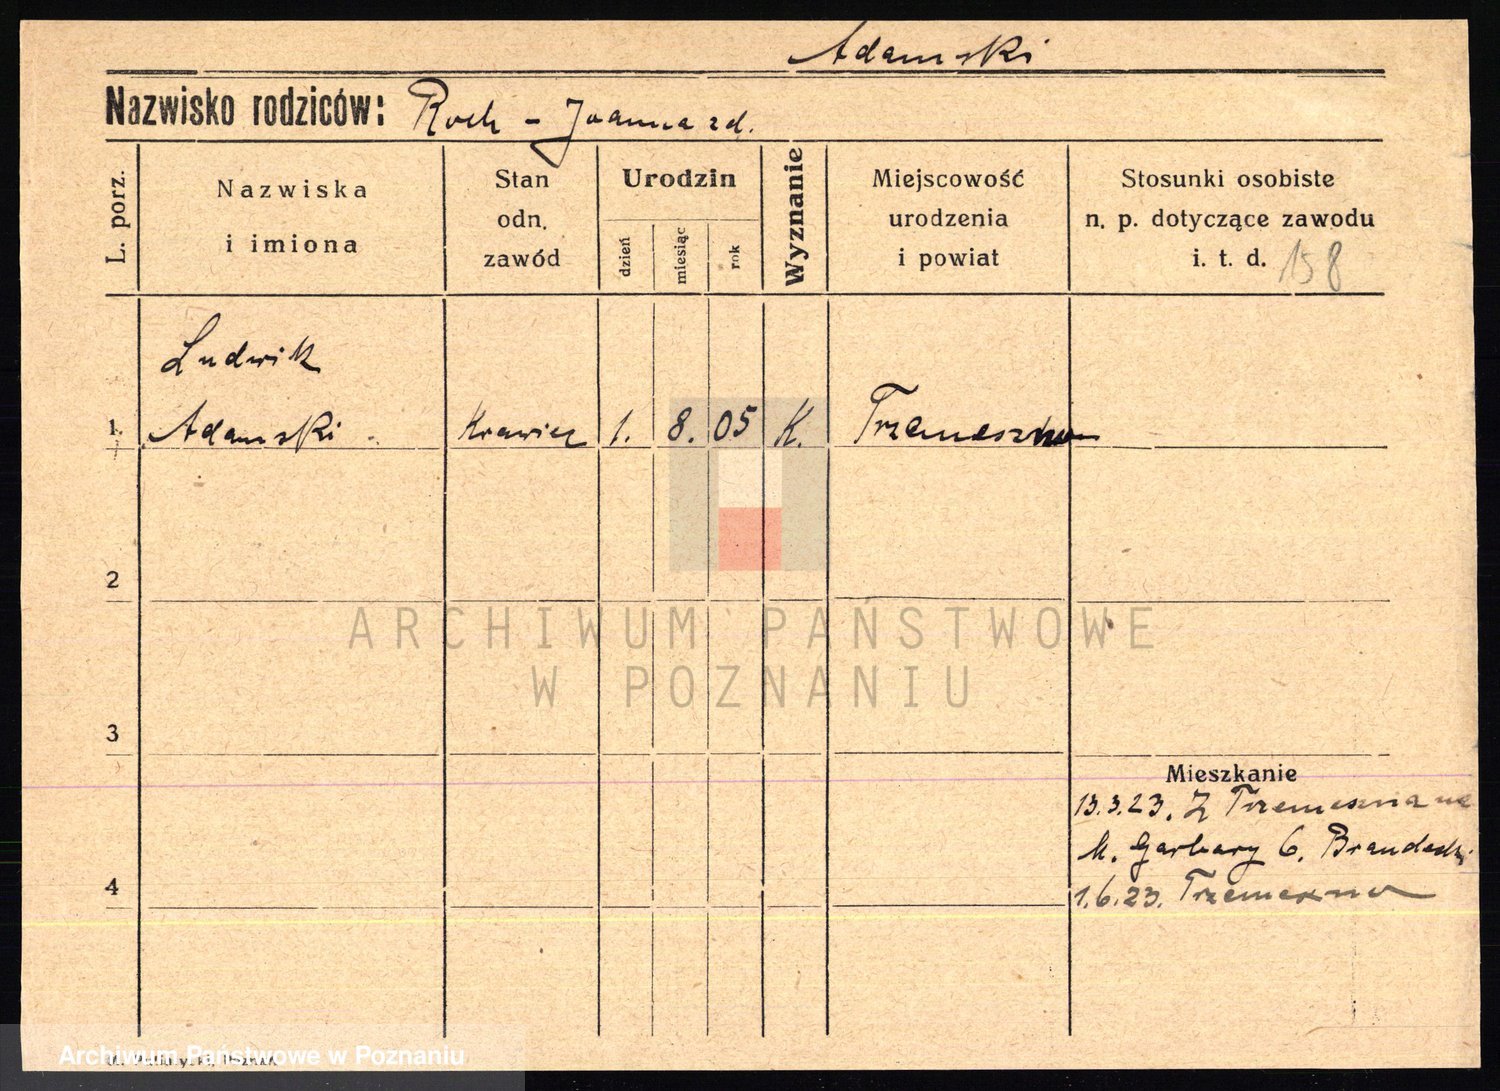 Adamski
Nazwisko rodziców: Roch - Joanna zd.
L. porz.
Nazwiska
i imiona
Stan
odn.
zawód
Urodzin
dzień
miesiąc
rok
Wyznanie
Miejscowość
urodzenia
i powiat
Stosunki osobiste
n. p. dotyczące zawodu
i. t. d. 158
Ludwik
1. Adamski Krawiec 1. 8. 05 K. Trzemeszno
2
ARCHIWUM PAŃSTWOWE
W POZNANIU
3
Mieszkanie
13.3.23. Z Trzemeszna
M. Garbary 6.
4
1.6.23. Trzemeszno
Archiwum Państwowe w Poznaniu
Poznań